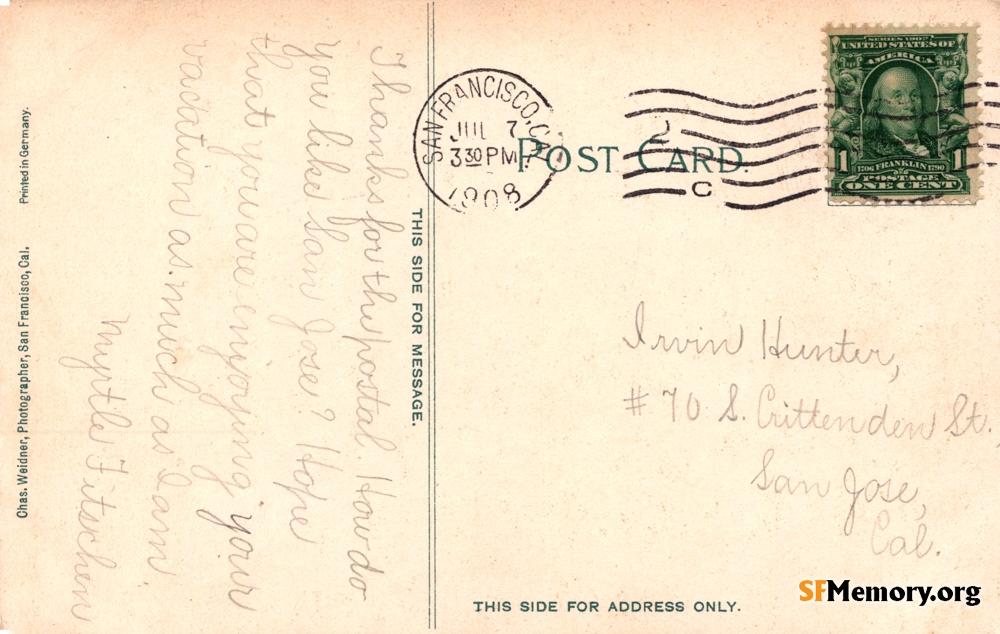 Thanks for the postal. How do
you like San Jose? Hope
that you are enjoying your
vacation as much as I am.
Myrtle Fitschen
THIS SIDE FOR MESSAGE.
Chas. Weidner, Photographer, San Francisco, Cal.
Printed in Germany.
POST CARD.
SAN FRANCISCO, CAL.
JUL 7
3 30 PM
1908
C
SERIES 1902
UNITED STATES OF
AMERICA
1 1706 FRANKLIN 1790 1
POSTAGE
ONE CENT
Irvin Hunter,
# 70 S. Crittenden St.
San Jose,
Cal.
THIS SIDE FOR ADDRESS ONLY.
SFMemory.org